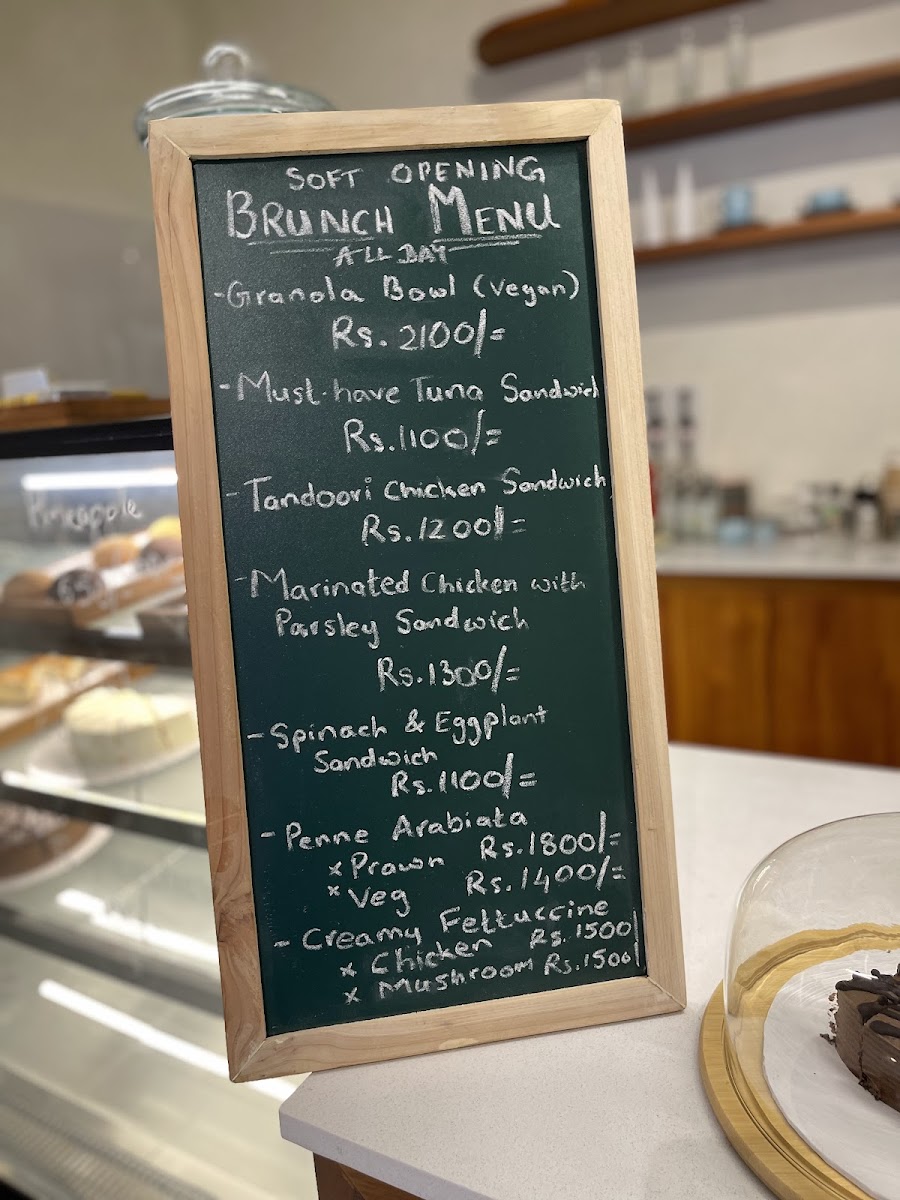 SOFT OPENING
BRUNCH MENU
ALL DAY
-Granola Bowl (vegan)
Rs. 2100/=
-Must-have Tuna Sandwich
Rs.1100/=
-Tandoori Chicken Sandwich
Rs.1200/=
-Marinated Chicken with
Parsley Sandwich
Rs.1300/=
-Spinach & Eggplant
Sandwich
Rs.1100/=
- Penne Arabiata
x Prawn Rs.1800/=
x Veg Rs.1400/=
- Creamy Fettuccine
x Chicken Rs.1500/
x Mushroom Rs.1500/
Pineapple